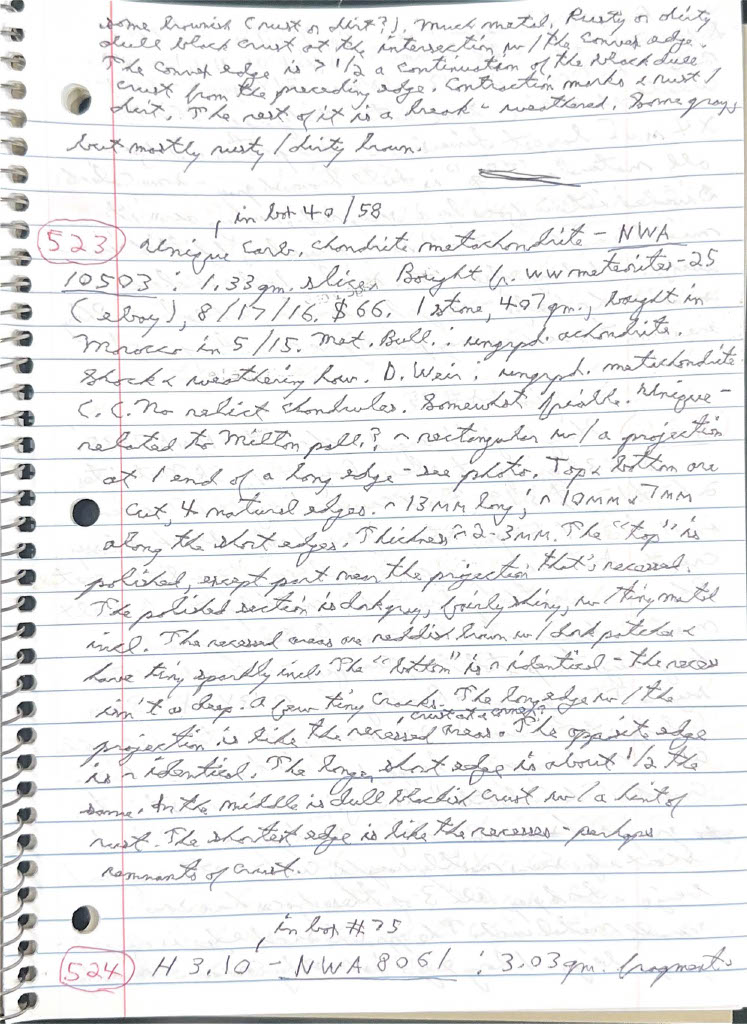 some brownish (rust or dirt?). Much metal. Rusty or dirty
dull black crust at the intersection w/ the convex edge.
The convex edge is > 1/2 a continuation of the black dull
crust from the preceding edge. Contraction marks & rust/
dirt. The rest of it is a break - weathered. Some gray,
but mostly rusty/dirty brown.
, in box 40/58
523 Unique carb. chondrite metachondrite - NWA
10503 : 1.33 gm. slice. Bought fr. wwmeteorites-25
(ebay), 8/17/16. $66. 1 stone, 407 gm., bought in
Morocco in 5/15. Met. Bull. : ungrpd. achondrite.
Shock & weathering low. D. Weir : ungrpd. metachondrite
C.C. No relict chondrules. Somewhat friable. Unique -
related to Milton pall.? ~ rectangular w/ a projection
at 1 end of a long edge - see photo. Top & bottom are
cut, 4 natural edges. ~ 13 MM long; ~ 10 MM & 7 MM
along the short edges. Thickness ~ 2-3 MM. The "top" is
polished, except part near the projection that's recessed.
The polished section is dark gray, fairly shiny, w/ tiny metal
incl. The recessed areas are reddish brown w/ dark patches &
have tiny sparkly incl. The "bottom" is ~ identical - the recess
isn't as deep. A few tiny cracks. The long edge w/ the
projection is like the recessed areas, crust at a corner? The opposite edge
is ~ identical. The longer short edge is about 1/2 the
same. In the middle is dull blackish crust w/ a hint of
rust. The shortest edge is like the recesses - perhaps
remnants of crust.
, in box #75
524 H 3.10 - NWA 8061 : 3.03 gm. fragment.